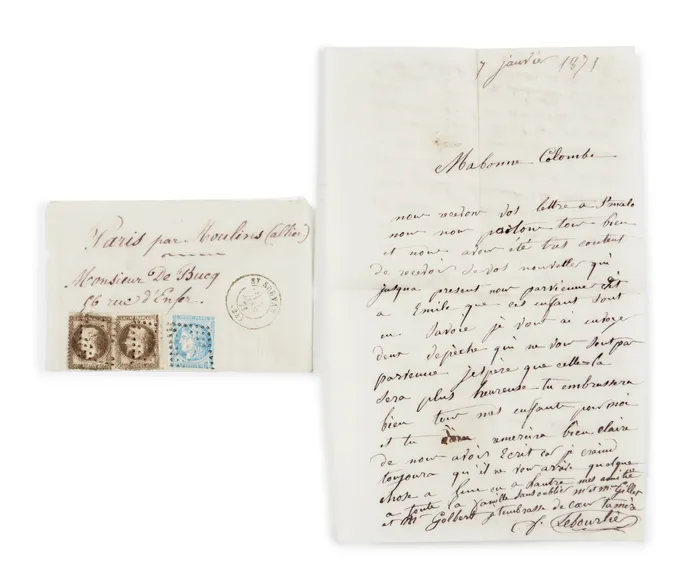 Paris par Moulins (allier)
Monsieur De Bucq
56 rue d'Enfer
ST SERVAN
7 janvier 1871
Mabonne Colombe
nous recevon vos lettre a St malo
nous nous portons tous bien
et nous avons été tres contens
de recevoir de vos nouvelle qui
jusqua present nous parvienne dit
a Emile que ces enfant sont
en Savoie je vous ai envoyé
deux depèche qui ne vous sont pas
parvenue jespère que celle-la
sera plus heureuse tu embrassera
bien tous mes enfants pour moi
et tu remerciera bien claire
de nous avoir Ecrit car je craind
toujours qu'il ne vous arrive quelque
chose a l'une ou a l'autre mes amitié
a toute la famille sans oublier mr et me Golbert
et Mr Golbert je tembrasse de cœur ta mère